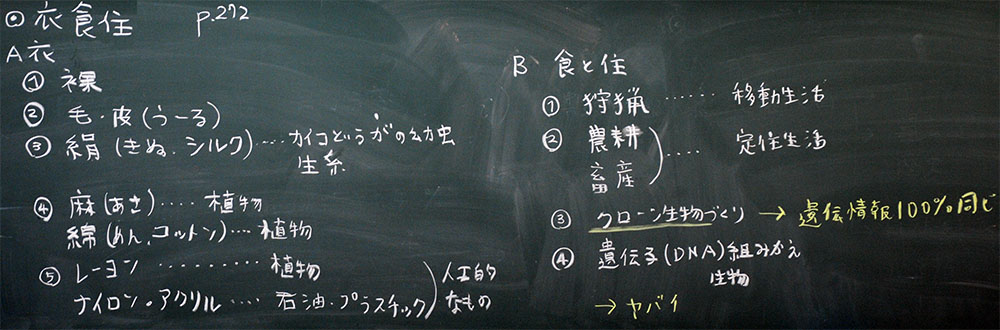 ◎ 衣食住 p.272
A 衣
① 裸
② 毛・皮(うーる)
③ 絹(きぬ、シルク)…… カイコどうがの幼虫
生糸
④ 麻(あさ)…… 植物
綿(めん、コットン)…… 植物
⑤ レーヨン ……… 植物
ナイロン・アクリル …… 石油・プラスチック
人工的
なもの
B 食と住
① 狩猟 …… 移動生活
② 農耕
畜産 …… 定住生活
③ クローン生物づくり → 遺伝情報100%同じ
④ 遺伝子(DNA)組みかえ
生物
→ ヤバイ